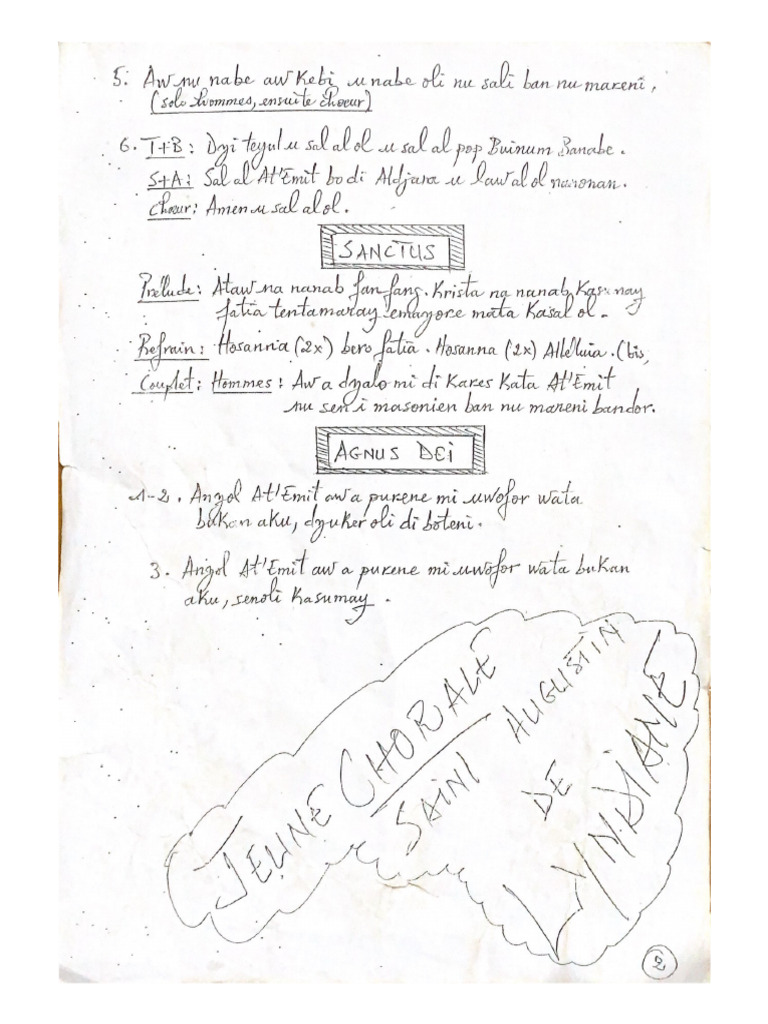 5. Aw nu nabe aw Kebi u nabe oli nu sali ban nu mareni,
(solo hommes, ensuite choeur)
6. T+B: Dyi teyul u sal al ol u sal al pop Buinum Banabe.
S+A: Sal al At'Emit bo di Aldjana u lawal ol naronan.
Choeur: Amen u sal al ol.
SANCTUS
Prélude: Ataw na nanab fan fang. Krista na nanab Kasumay
fatia tentamaray emayore mata Kasal ol.
Refrain: Hosanna (2x) bero fatia. Hosanna (2x) Alleluia. (bis,
Couplet: Hommes: Aw a dyalo mi di Kares Kata At'Emit
nu sen i masonien ban nu mareni bandor.
AGNUS DEI
1-2. Anyol At'Emit aw a purene mi uwofor wata
bukan aku, dyuker oli di boteni.
3. Anyol At'Emit aw a purene mi uwofor wata bukan
aku, senoli Kasumay.
JEUNE CHORALE
SAINT AUGUSTIN
DE
LYNDIANE
2